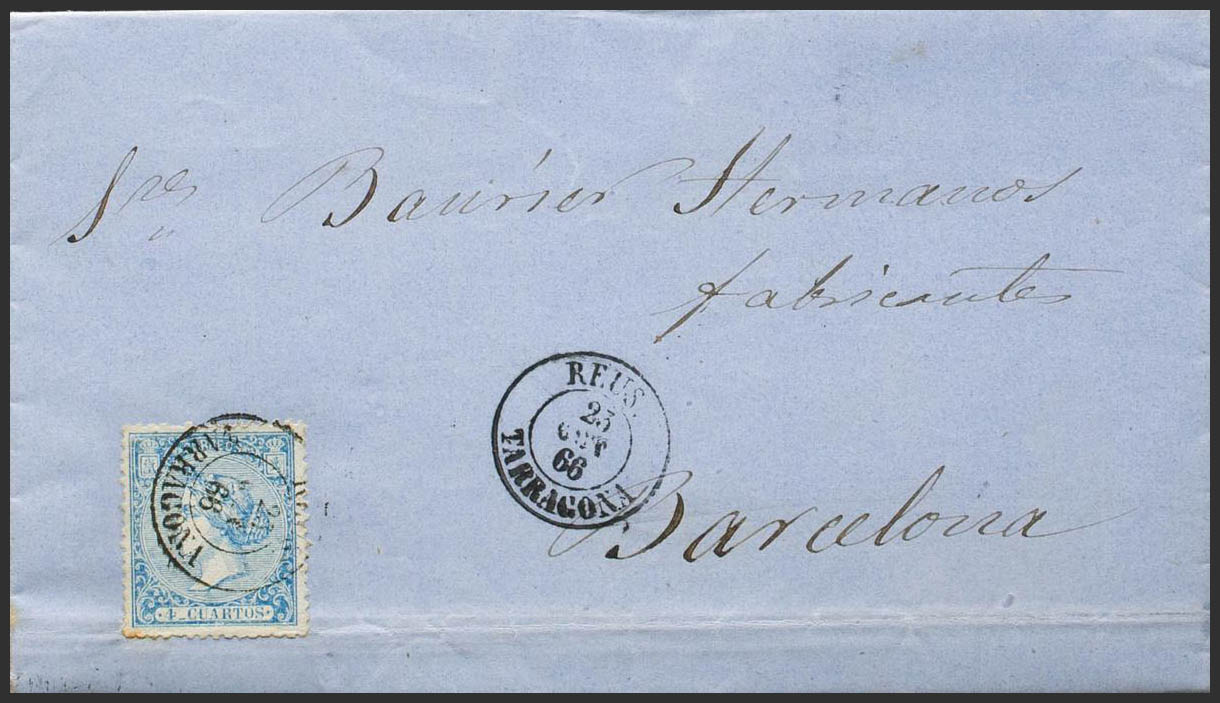 Sres Baurier Hermanos
fabricantes
REUS.
25
OCT
66
TARRAGONA
Barcelona
TARRAGONA
66
4 CUARTOS